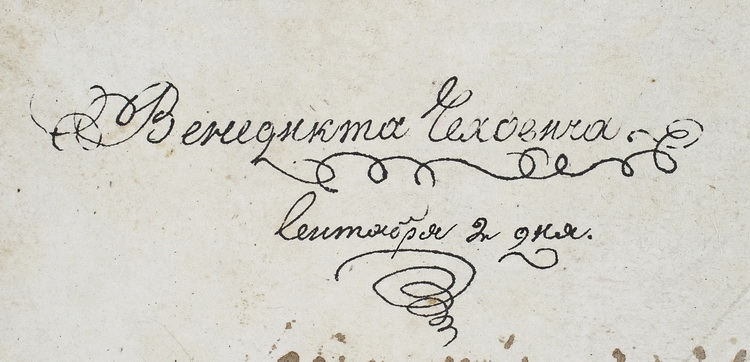 Венедикта Чеховича.
Сентабря 2 дня.